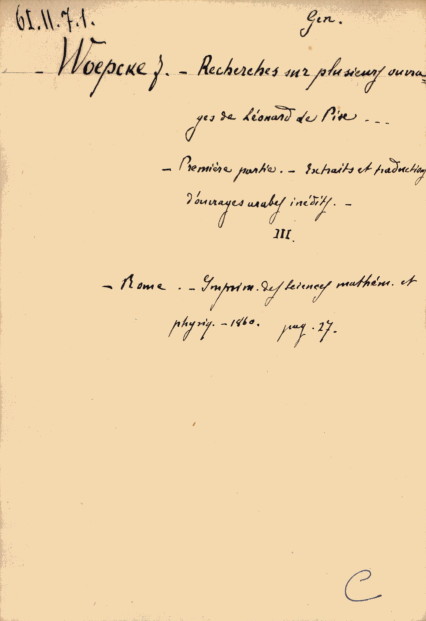 61.11.7.1.
Gen.
- Woepcke F. - Recherches sur plusieurs ouvra=
ges de Léonard de Pise ...
- Première partie. - Extraits et traduction
d'ouvrages arabes inédits. -
III.
- Rome. - Imprim. des Sciences mathém. et
physiq. - 1860. pag. 27.
C